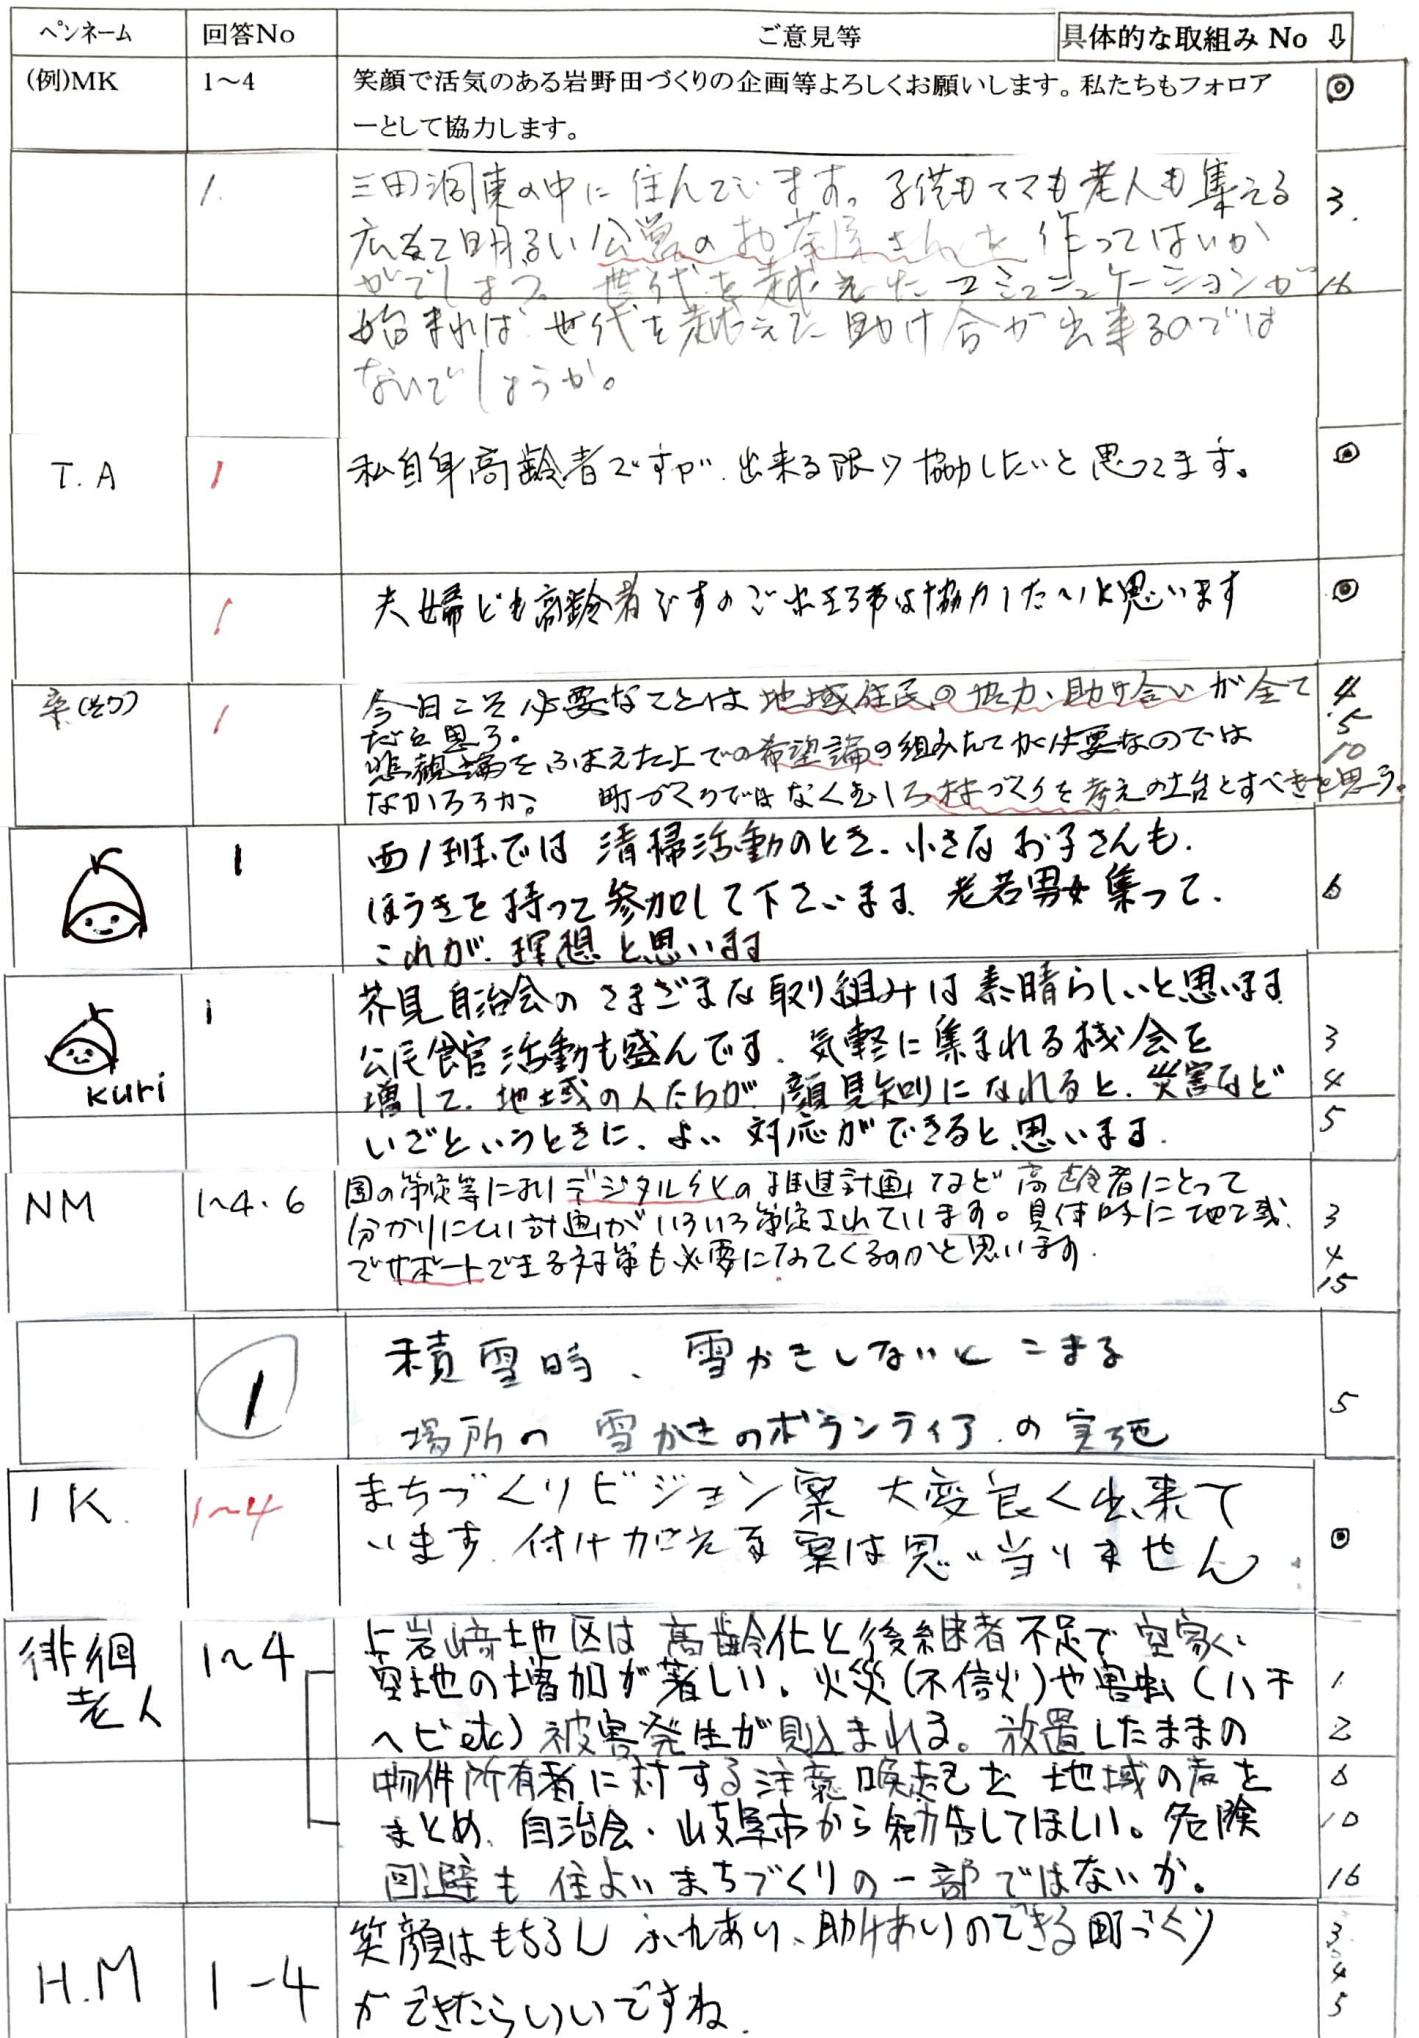 ペンネーム 回答No ご意見等 具体的な取組み No ⇩
(例)MK 1～4 笑顔で活気のある岩野田づくりの企画等よろしくお願いします。私たちもフォロア ◎
ーとして協力します。
1. 三田洞東の中に住んでいます。子供もママも老人も集える 3.
広くて明るい公営のお茶屋さんを作ってはいか
がでしょう。世代を越えたコミュニュケーションが 16
始まれば世代を越えた助け合が出来るのでは
ないでしょうか。
T.A 1 私自身高齢者ですが、出来る限り協力したいと思ってます。 ◎
1 夫婦とも高齢者ですので出来る事は協力したいと思います ◎
(そう) 1 今日こそ必要なことは地域住民の協力、助け合いが全て 4
だと思う。 5
悲観論をふまえた上での希望論の組みたてが必要なのでは 10
なかろうか。 町づくりではなくむしろ村づくりを考えの土台とすべきと思う。
1 西1班では清掃活動のとき、小さなお子さんも、
ほうきを持って参加して下さいます。老若男女集って、 6
これが、理想と思います
1 芥見自治会のさまざまな取り組みは素晴らしいと思います
公民館活動も盛んです。気軽に集まれる機会を 3
kuri 増して、地域の人たちが、顔見知りになれると、災害など 4
いざというときに、よい対応ができると思います。 5
NM 1～4・6 国の策定等によりデジタル化の推進計画など高齢者にとって
分かりにくい計画がいろいろ策定されています。具体的に地域 3
でサポートできる対策も必要になってくるのかと思います。 4
15
1 積雪時、雪かきしないとこまる
場所の雪かきのボランティアの実施 5
I K. 1～4 まちづくりビジョン案 大変良く出来て
います。付け加える案は思い当りません ◎
徘徊 1～4 上岩崎地区は高齢化と後継者不足で空家、
老人 空地の増加が著しい。火災(不信火)や害虫(ハチ 1
ヘビetc)被害発生が見込まれる。放置したままの 2
物件所有者に対する注意喚起を地域の声を 6
まとめ、自治会・岐阜市から勧告してほしい。危険 10
回避も住よいまちづくりの一部ではないか。 16
H.M 1-4 笑顔はもちろんふれあい、助けあいのできる町づくり 3
ができたらいいですね. 4
5